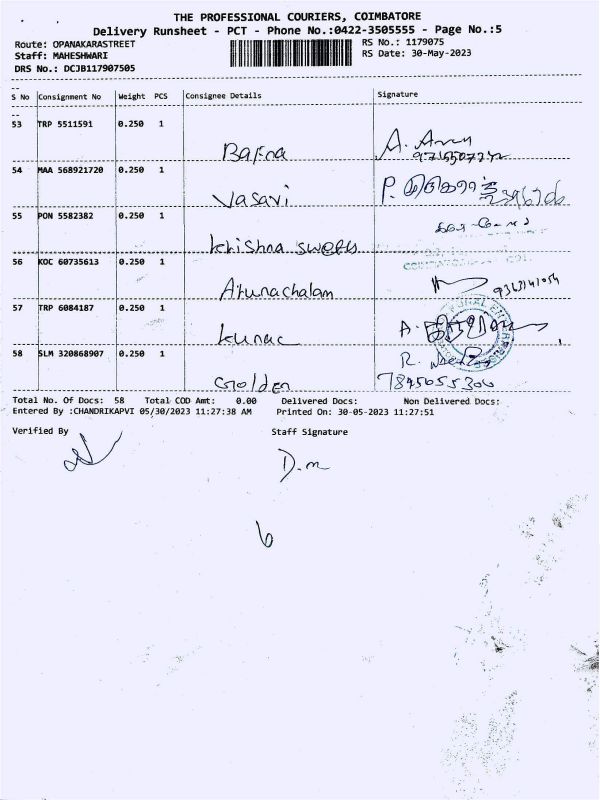 THE PROFESSIONAL COURIERS, COIMBATORE
Delivery Runsheet - PCT - Phone No.:0422-3505555 - Page No.:5
Route: OPANAKARASTREET RS No.: 1179075
Staff: MAHESHWARI RS Date: 30-May-2023
DRS No.: DCJB117907505
S No Consignment No Weight PCS Consignee Details Signature
53 TRP 5511591 0.250 1
Bafna A.
54 MAA 568921720 0.250 1
Vasavi P.
55 PON 5582382 0.250 1
Krishna sweets
56 KOC 60735613 0.250 1
Arunachalam
57 TRP 6084187 0.250 1
A.
58 SLM 320868907 0.250 1
Golden R.
Total No. Of Docs: 58 Total COD Amt: 0.00 Delivered Docs: Non Delivered Docs:
Entered By :CHANDRIKAPVI 05/30/2023 11:27:38 AM Printed On: 30-05-2023 11:27:51
Verified By Staff Signature
D.m
6